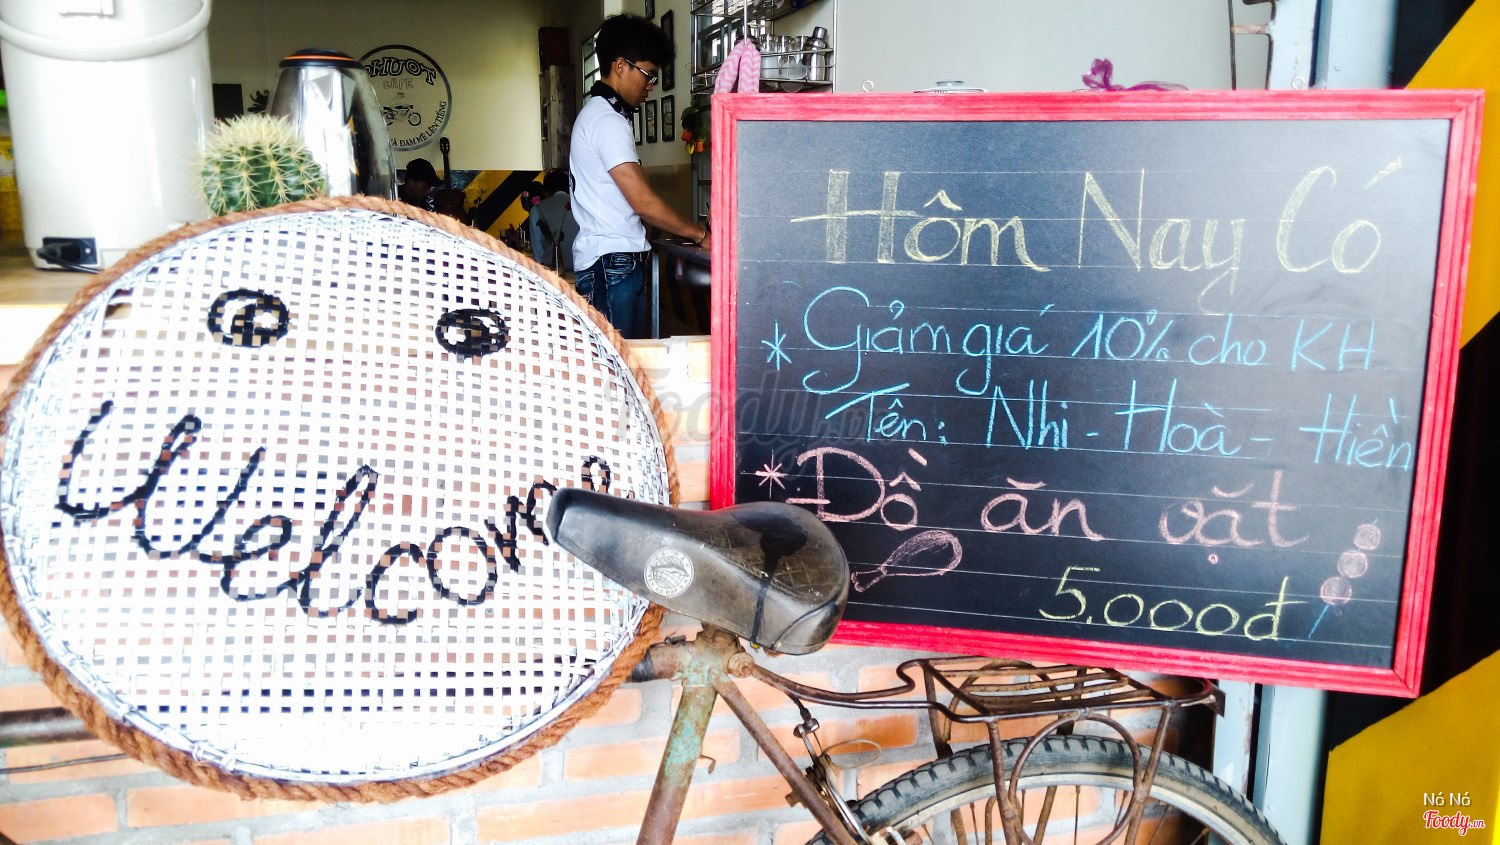 PHUOT
CAFE
VÀ ĐAM MÊ LÊN TIẾNG
Welcome
Hôm Nay Có
* Giảm giá 10% cho KH
Tên: Nhi - Hoà - Hiền
* Đồ ăn vặt
5.000đ
Foody.vn
Nó Nó
Foody.vn